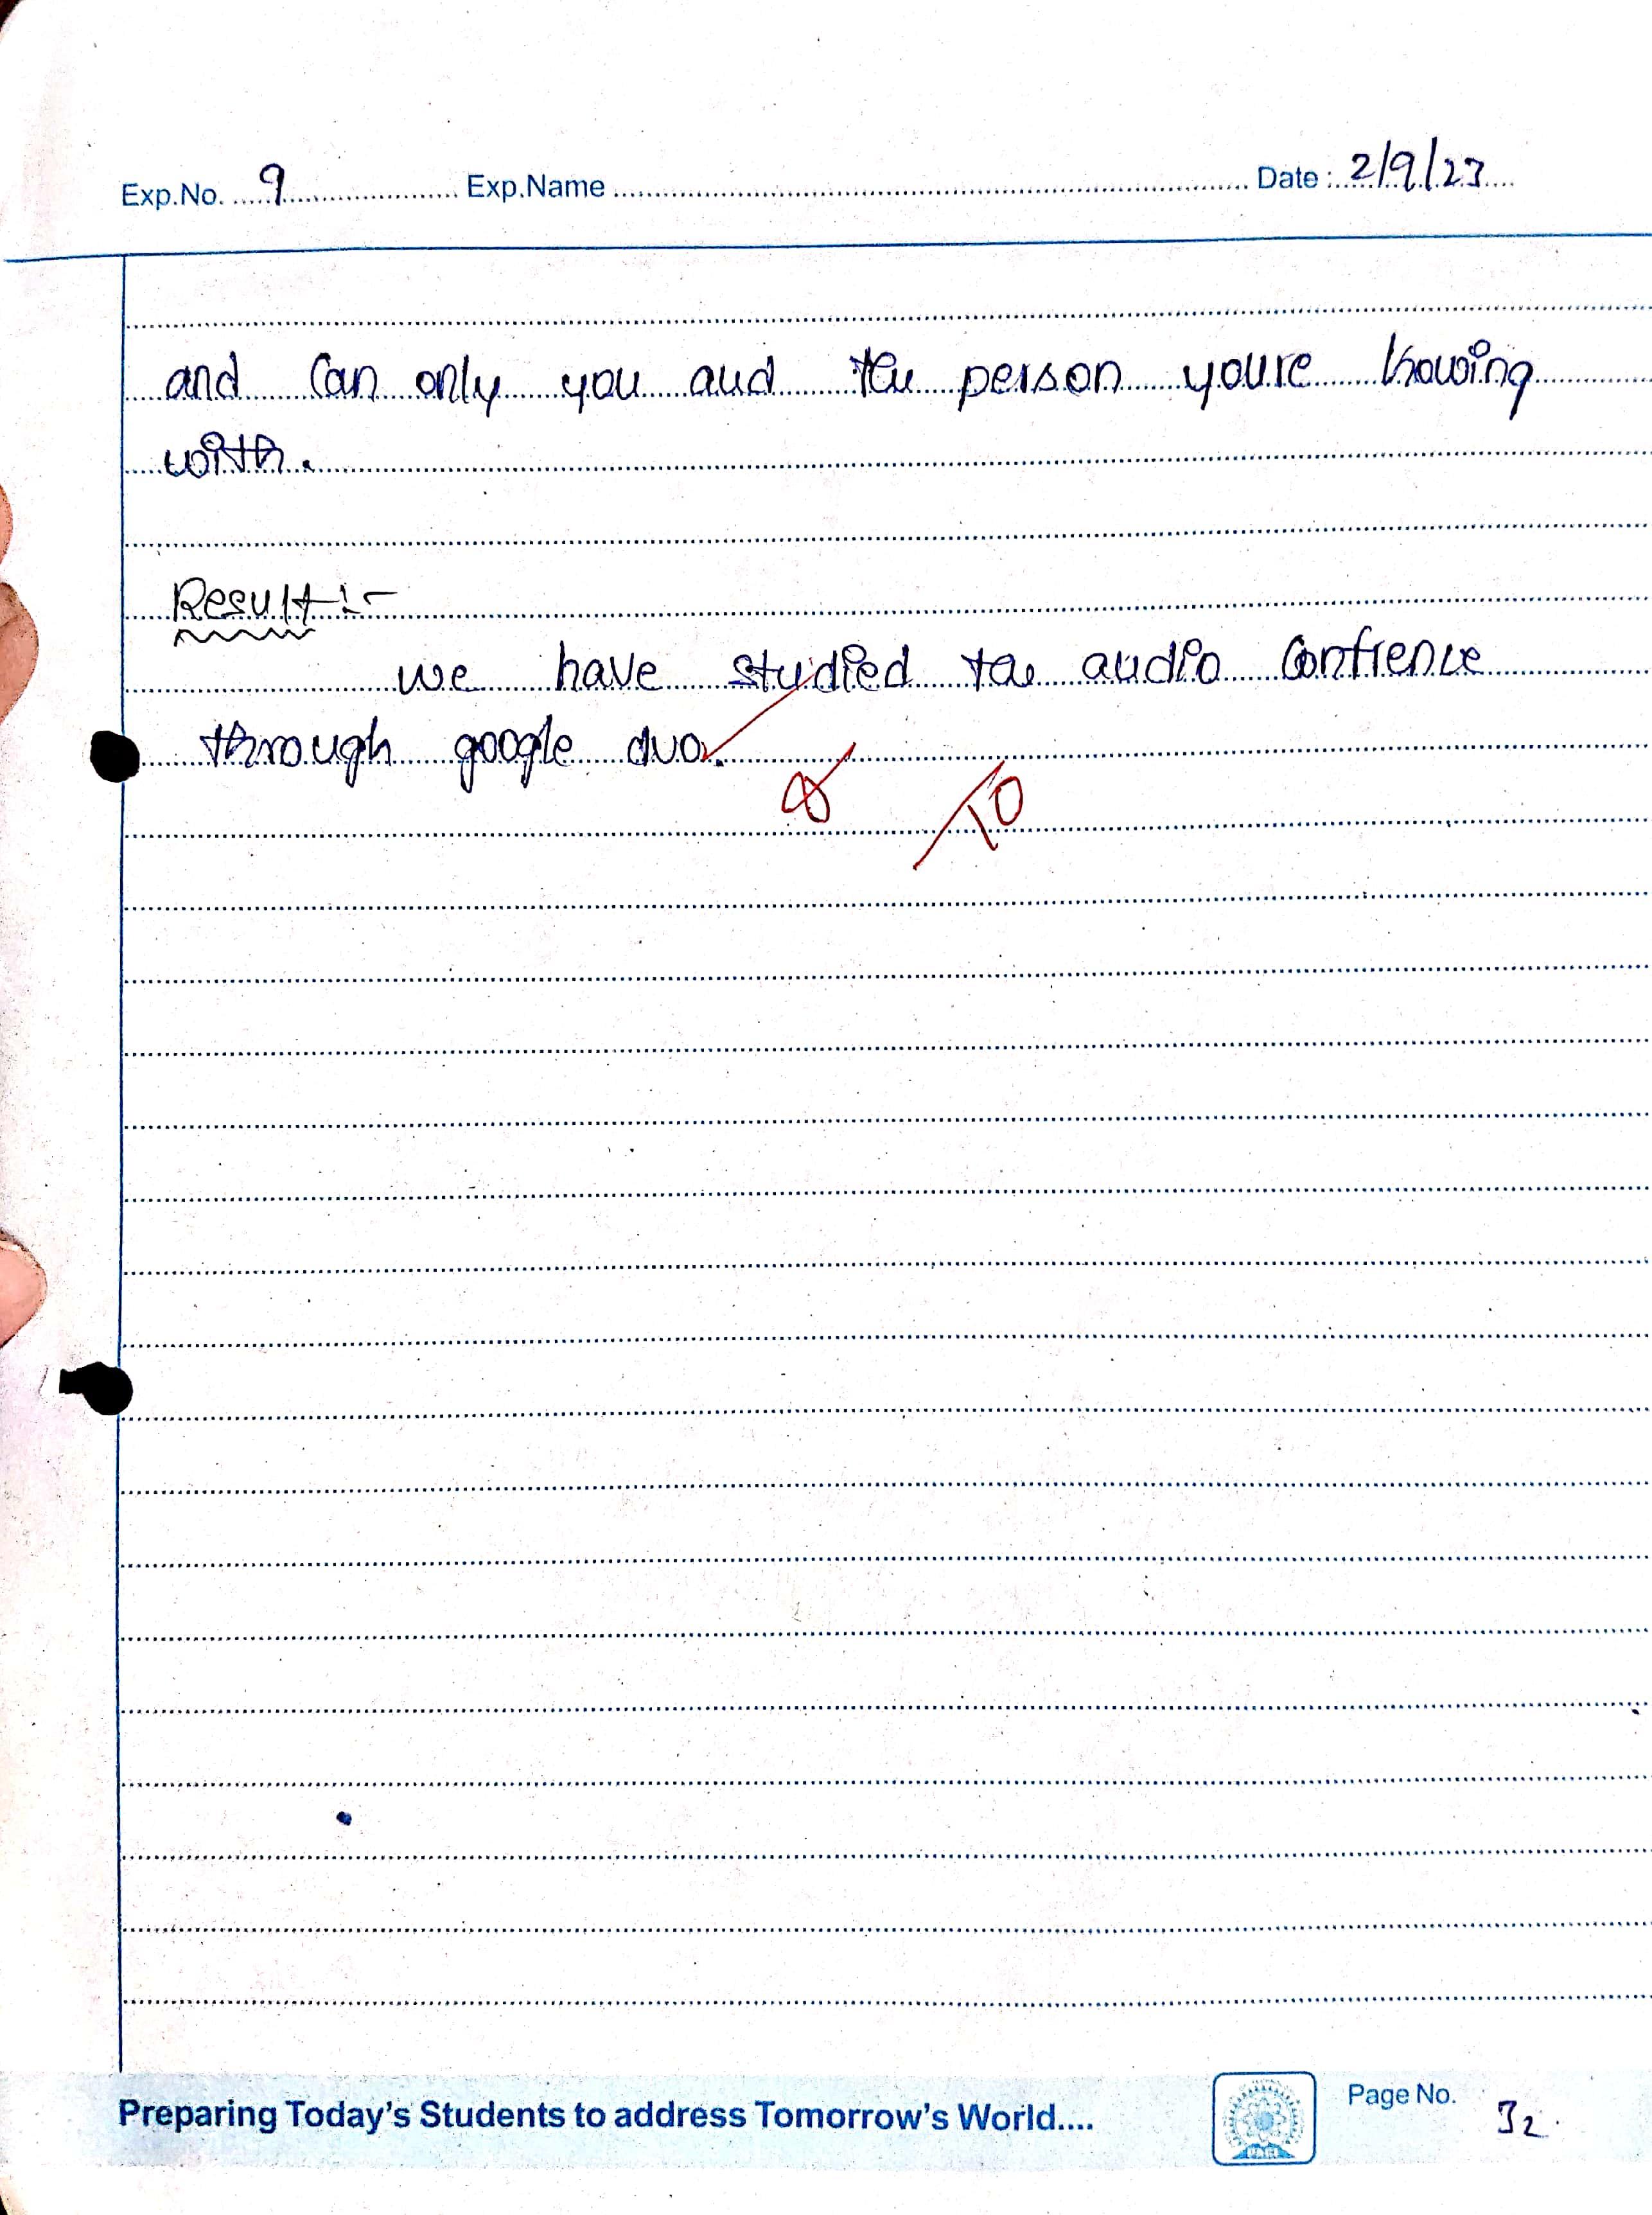 Exp.No. 9 Exp.Name Date : 2/9/23
and can only you and the person youre knowing
with.
Result :-
we have studied the audio confrence
through google duo.
10
Preparing Today's Students to address Tomorrow's World....
Page No. 32